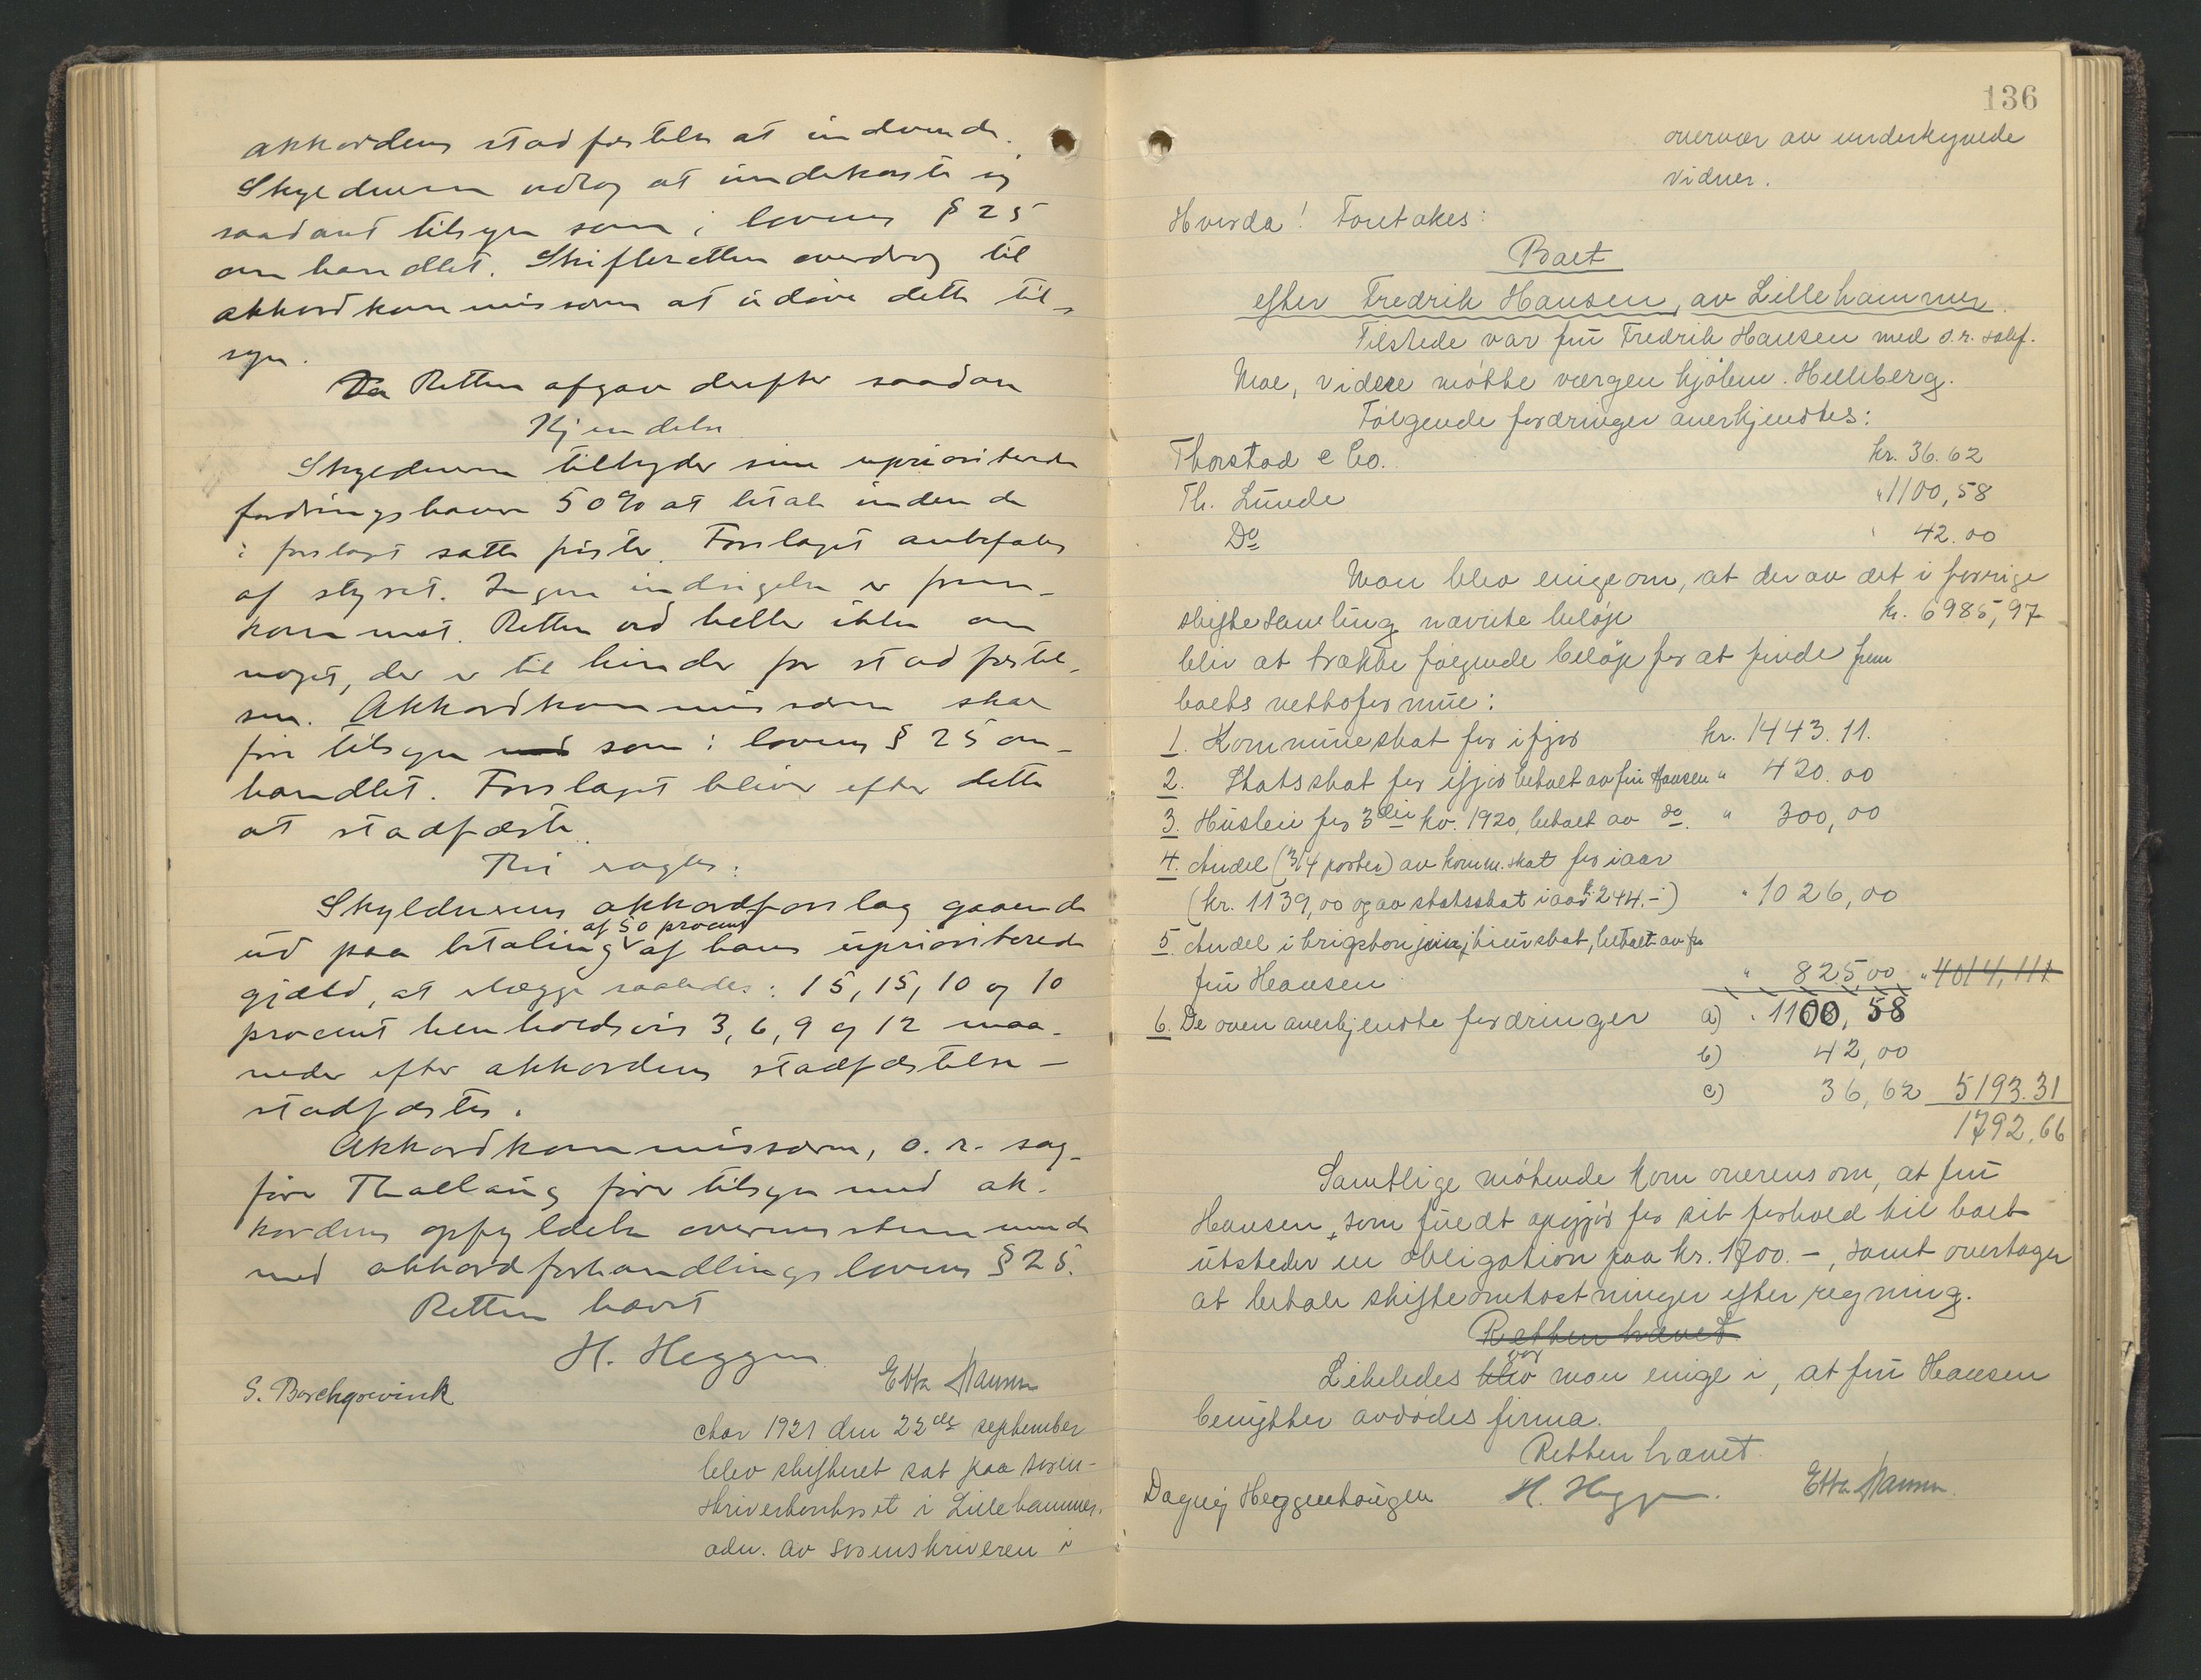 akkordens stadfæstelse at indvende.
Skyldneren vedtog at underkaste sig
saadant tilsyn som i lovens § 25
omhandlet. Skifteretten overdrog til
akkordkommissæren at udøve dette til-
syn.
Retten afgav derefter saadan
Kjendelse
Skyldneren tilbyder sine uprioriterede
fordringshavere 50 % at betale inden de
i forslaget satte frister. Forslaget anbefales
af styret. Ingen indsigelse er frem-
kommet. Retten ved heller ikke om
noget, der er til hinder for stadfæstel-
sen. Akkordkommissæren skal
føre tilsyn med som i lovens § 25 om-
handlet. Forslaget bliver efter dette
at stadfæste.
Thi sagdes:
Skyldnerens akkordforslag gaaende
af 50 procent
ud paa betaling af hans uprioriterede
gjæld, at erlægge saaledes: 15, 15, 10 og 10
procent henholdsvis 3, 6, 9 og 12 maa-
neder efter akkordens stadfæstelse –
stadfæstes.
Akkordkommissæren, o. r. sag-
fører Thallaug fører tilsyn med ak-
kordens opfyldelse overensstemmende
med akkordforhandlingslovens § 25.
Retten hævet
H. Heggen
S. Borchgrevink Ebba Hansen
Aar 1921 den 22de september
blev skifteret sat paa soren-
skriverkontoret i Lillehammer,
adm. av sorenskriveren i
136
overvær av underskrevne
vidner.
Hvorda! Foretakes:
Boet
efter Fredrik Hansen, av Lillehammer.
Tilstede var fru Fredrik Hansen med o.r. sakf.
Moe, videre møtte vergen kjøbm. Helleberg.
Følgende fordringer anerkjendtes:
Thorstad & Co. kr. 36.62
Th. Lunde " 1100,58
Do " 42.00
Man blev enige om, at der av det i forrige
skiftesamling nævnte beløp kr. 6985,97
blir at trække følgende beløp for at finde frem
boets nettoformue:
1. Kommuneskat for ifjor kr. 1443.11.
2. Statsskat for ifjor betalt av fru Hansen " 420.00
3. Husleie for 3die kv. 1920, betalt av do. " 300,00
4. Andel (3/4 parten) av komm. skat for iaar
(kr. 1139,00 og av statsskat iaar kr. 244.–) " 1026,00
5. Andel i krigskonjunkturskat, betalt av
fru Hansen " 825,00 " 4014,11
6. De oven anerkjendte fordringer a) " 1100,58
b) 42,00
c) 36,62 5193.31
1792,66
Samtlige møtende kom overens om, at fru
Hansen, som fuldt opgjør for sit forhold til boet
utsteder en obligation paa kr. 1800.–, samt overtager
at betale skifteomkostninger efter regning.
Retten hævet
var
Likeledes blev man enige i, at fru Hansen
benytter avdødes firma.
Retten hævet.
Dagny Heggenhougen H. Heggen. Ebba Hansen.